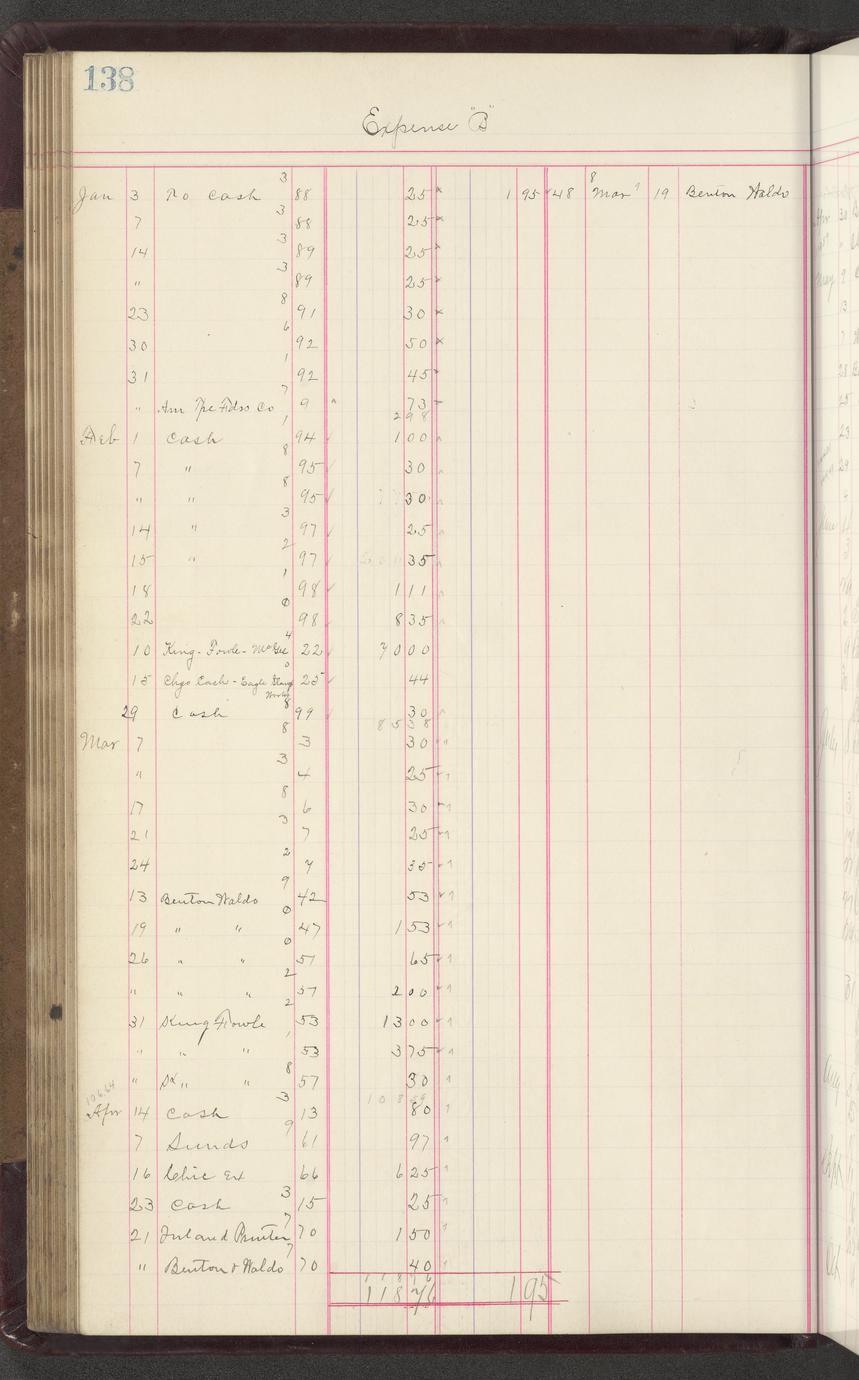 138
Expense "B"
Jan 3 To Cash 3 88 25 1 95 48 8 Mar 19 Benton Waldo
7 3 88 25
14 3 89 25
" 3 89 25
23 8 91 30
30 6 92 50
31 1 92 45
" Am Tpe Fdrs Co 7 9 73
298
Feb 1 Cash 1 94 1 00
7 " 8 95 30
" " 8 95 30
14 " 3 97 25
15 " 2 97 35
18 1 98 1 11
22 0 98 8 35
10 King-Fowle-McGee 4 22 70 00
15 Chgo Cash - Eagle Works 0 25 44
29 Cash 8 99 30
85 38
Mar 7 8 3 30
" 3 4 25
17 8 6 30
21 3 7 25
24 2 7 35
13 Benton Waldo 9 42 53
19 " " 0 47 1 53
26 " " 0 57 65
" " " 2 57 2 00
31 King Fowle 2 53 13 00
" " " 53 3 75
" " " 8 57 30
106.64
108 59
Apr 14 Cash 3 13 80
7 Sunds 9 61 97
16 Chic Ex 66 6 25
23 Cash 3 15 25
21 Inland Printer 7 70 1 50
" Benton & Waldo 7 70 40
118 76
118 76 1 95